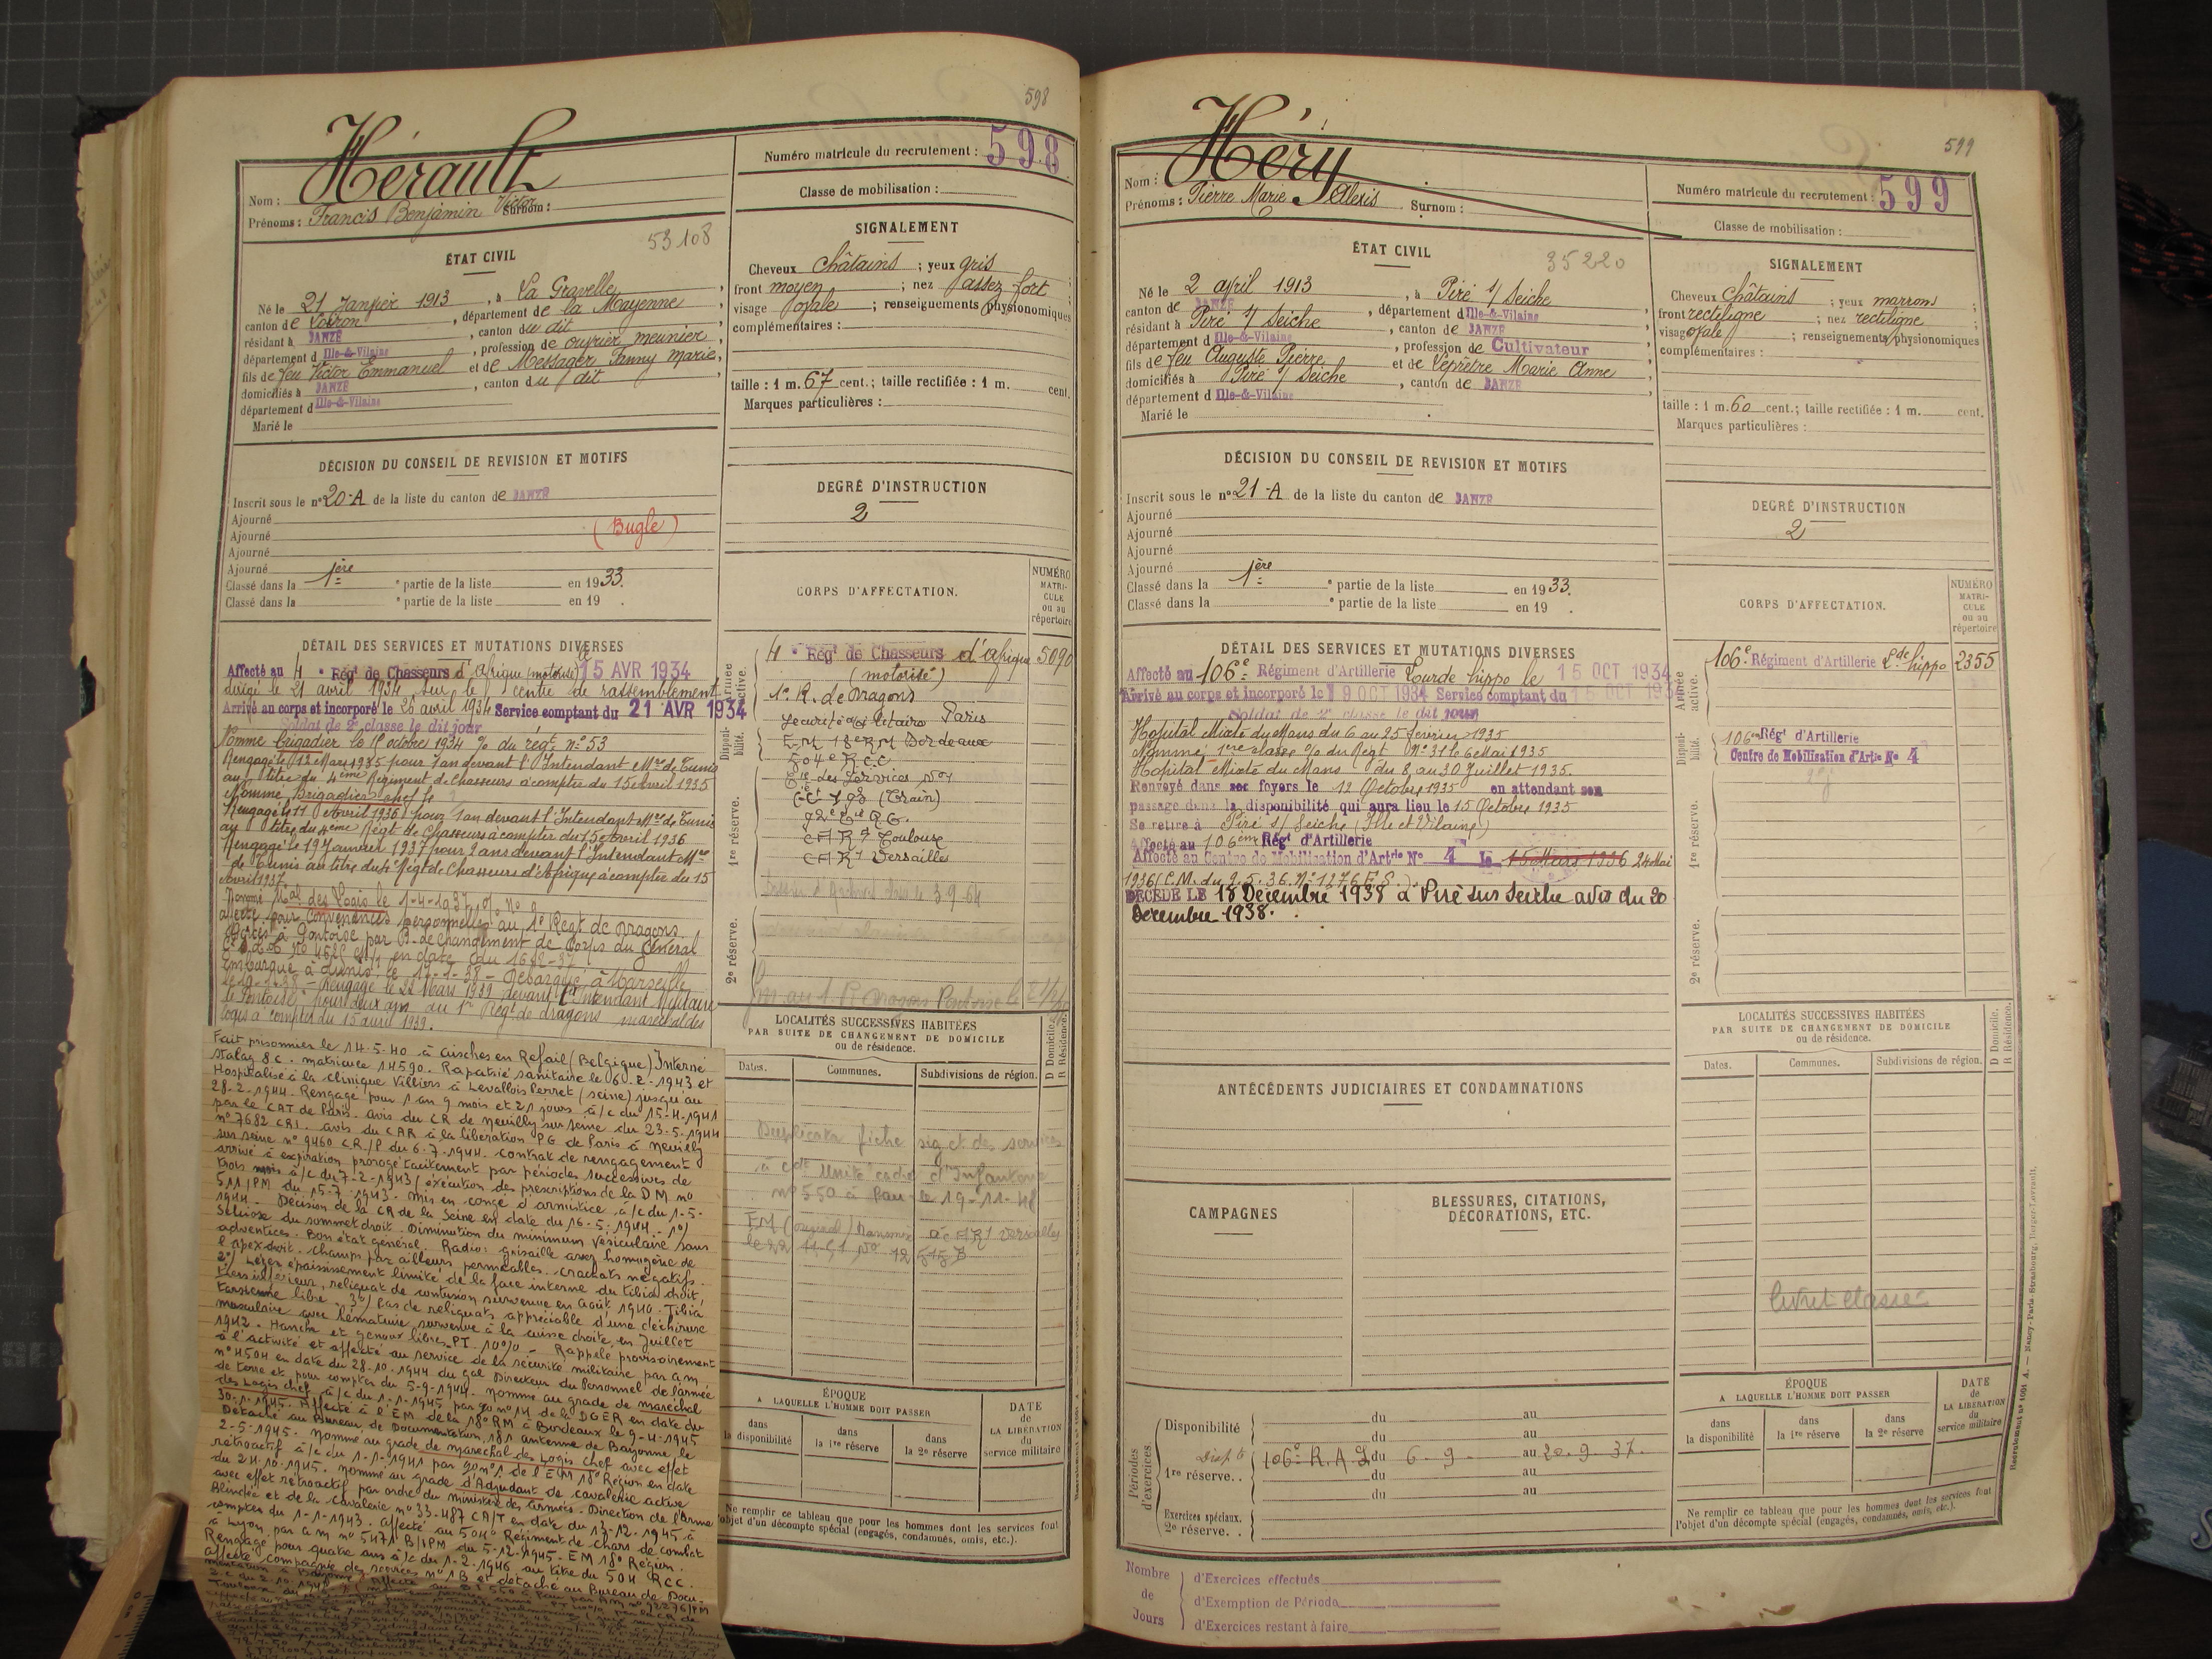 598
Hérault
Nom :
Prénoms : Francis Benjamin Victor Surnom :
Numéro matricule du recrutement : 598
Classe de mobilisation :
53108
ÉTAT CIVIL
Né le 21 Janvier 1913, à La Gravelle,
canton de Loiron, département de la Mayenne
résidant à JANZÉ, canton du dit
département d Ille-&-Vilaine, profession de ouvrier meunier,
fils de feu Victor Emmanuel et de Messager Fanny Marie,
domiciliés à JANZÉ, canton du dit,
département d Ille-&-Vilaine
Marié le
SIGNALEMENT
Cheveux châtains ; yeux gris ;
front moyen ; nez assez fort ;
visage ovale ; renseignements physionomiques
complémentaires :
taille : 1 m. 67 cent.; taille rectifiée : 1 m. cent.
Marques particulières :
DÉCISION DU CONSEIL DE REVISION ET MOTIFS
Inscrit sous le n° 20-A de la liste du canton de JANZÉ
Ajourné
Ajourné (Bugle)
Ajourné
Ajourné
Classé dans la 1ère e partie de la liste en 1933.
Classé dans la e partie de la liste en 19 .
DEGRÉ D'INSTRUCTION
2
CORPS D'AFFECTATION.
NUMÉRO MATRI-CULE ou au répertoire
DÉTAIL DES SERVICES ET MUTATIONS DIVERSES
Affecté au 4 e Régt de Chasseurs d'Afrique (motorisé) 15 AVR 1934
dirigé le 21 avril 1934 sur le centre de rassemblement
Arrivé au corps et incorporé le 26 avril 1934 Service comptant du 21 AVR 1934
Soldat de 2e classe le dit jour
Nommé brigadier le octobre 1934 % du régt n° 53
Rengagé le 12 Mars 1935 pour 1 an devant l'Intendant Mre de Tunis
au titre du 4ème Régiment de Chasseurs à compter du 15 Avril 1935
Nommé Brigadier chef le
Rengagé le 11 Avril 1936 pour 1 an devant l'Intendant Mre de Tunis
au titre du 4ème Régt de Chasseurs à compter du 15 Avril 1936
Rengagé le 19 Janvier 1937 pour 2 ans devant l'Intendant Mre
de Tunis au titre du 4e Régt de Chasseurs d'Afrique à compter du 15
Avril 1937
Nommé Mal des Logis le 1-4-1937
affecté pour convenances personnelles au 1e Régt de Dragons
à Pontoise par B. de changement de Corps du Général
en date du 16-12-37
Embarqué à Tunis le 17-1-38 - Débarqué à Marseille
Rengagé le 22 Mars 1939 devant l'Intendant Militaire
de Pontoise pour deux ans au 1er Régt de dragons maréchal des
logis à compter du 15 avril 1939.
Armée active.
4 e Régt de Chasseurs d'Afrique 5090
(motorisé)
1e R. de Dragons
Disponi-bilité.
Sécurité Militaire Paris
EM 18e RM Bordeaux
504e R.C.C
Cie des Services N°1
1re réserve.
(Train)
CAR Toulouse
CAR Versailles
2e réserve.
Fait prisonnier le 14-5-40 à Aisches en Refail (Belgique) Interné
Stalag 8c. matricule 14590. Rapatrié sanitaire le 6-2-1943 et
Hospitalisé à la clinique Villiers à Levallois Perret (Seine) jusqu'au
28.2.1944. Rengagé pour 1 an 9 mois et 21 jours à/c du 15-4-1941
par le CAT de Paris. avis du CR de Neuilly sur Seine du 23-5-1944
n° 7682 CR1. avis du CAR à la libération PG de Paris à Neuilly
sur Seine n° 9460 CR/P du 6-7-1944. Contrat de rengagement
arrivé à expiration prorogé tacitement par périodes successives de
trois mois à/c du 7-2-1943 (exécution des prescriptions de la DM n°
511/PM du 15-7-1943. Mis en congé d'armistice à/c du 1-5-
1944. Décision de la CR de la Seine en date du 16-5-1944. 1°/
Sclérose du sommet droit. Diminution du murmure vésiculaire sans
adventices. Bon état général. Radio: grisaille assez homogène de
l'apex droit. Champs par ailleurs perméables. Crachats négatifs.
2°/ Léger épaississement limité de la face interne du tibia droit,
tiers inférieur, reliquat de contusion survenue en août 1940. Tibia
tarsienne libre. 3°/ Pas de reliquats appréciable d'une déchirure
musculaire avec hématurie survenue à la cuisse droite en Juillet
1942. Hanche et genoux libres. PT. 10%. Rappelé provisoirement
à l'activité et affecté au service de la sécurité militaire par am
n° 4504 en date du 28.10.1944 du gal Directeur du Personnel de l'armée
de terre et pour compter du 5-9-1944. Nommé au grade de maréchal
des Logis chef à/c du 1-1-1945 par go n° 14 de la DGER en date du
30-1-1945. Affecté à l'EM de la 18e RM à Bordeaux le 9-4-1945
Détaché au Bureau de Documentation 181 antenne de Bayonne le
2-5-1945. Nommé au grade de maréchal des Logis chef avec effet
rétroactif à/c du 1-1-1941 par go n° 1 de l'EM 18e Région en date
du 24.10.1945. Nommé au grade d'Adjudant de cavalerie active
avec effet rétroactif par ordre du ministère des armées. Direction de l'Arme
Blindée et de la Cavalerie n° 33.487 CA/T en date du 13-12-1945 à
compter du 1-1-1943. Affecté au 504e Régiment de chars de combat
à Lyon par am n° 5471 B/PM du 5-12-1945. EM 18e Région.
Rengagé pour quatre ans à/c du 1-2-1946 au titre du 504 RCC.
Affecté compagnie des services n° 18 et détaché au Bureau de Docu-
mentation à Bayonne
LOCALITÉS SUCCESSIVES HABITÉES
PAR SUITE DE CHANGEMENT DE DOMICILE
ou de résidence.
Dates. Communes. Subdivisions de région. D Domicile. R Résidence.
Duplicata fiche sig et des services
à cdt Unité cadre d'Infanterie
n° 550 à Pau le 19-11-48
ÉPOQUE
A LAQUELLE L'HOMME DOIT PASSER
dans la disponibilité
dans la 1re réserve
dans la 2e réserve
DATE de LA LIBÉRATION du service militaire
Ne remplir ce tableau que pour les hommes dont les services font
l'objet d'un décompte spécial (engagés, condamnés, omis, etc.).
599
Héry
Nom :
Prénoms : Pierre Marie Alexis Surnom :
Numéro matricule du recrutement : 599
Classe de mobilisation :
35220
ÉTAT CIVIL
Né le 2 avril 1913, à Piré s/ Seiche
canton de JANZÉ, département d Ille-&-Vilaine,
résidant à Piré s/ Seiche, canton de JANZÉ
département d Ille-&-Vilaine, profession de Cultivateur,
fils de feu Auguste Pierre et de Leprêtre Marie Anne
domiciliés à Piré s/ Seiche, canton de JANZÉ,
département d Ille-&-Vilaine
Marié le
SIGNALEMENT
Cheveux châtains ; yeux marrons ;
front rectiligne ; nez rectiligne ;
visage ovale ; renseignements physionomiques
complémentaires :
taille : 1 m. 60 cent.; taille rectifiée : 1 m. cent.
Marques particulières :
DÉCISION DU CONSEIL DE REVISION ET MOTIFS
Inscrit sous le n° 21-A de la liste du canton de JANZÉ
Ajourné
Ajourné
Ajourné
Ajourné
Classé dans la 1ère e partie de la liste en 1933.
Classé dans la e partie de la liste en 19 .
DEGRÉ D'INSTRUCTION
2
CORPS D'AFFECTATION.
NUMÉRO MATRI-CULE ou au répertoire
DÉTAIL DES SERVICES ET MUTATIONS DIVERSES
Affecté au 106e Régiment d'Artillerie Lourde hippo le 15 OCT 1934
Arrivé au corps et incorporé le 19 OCT 1934 Service comptant du 15 OCT 193
Soldat de 2e classe le dit jour
Hopital Mixte du Mans du 6 au 25 février 1935
Nommé 1ere classe % du Régt N° 31 le 6 Mai 1935
Hopital Mixte du Mans du 8 au 30 Juillet 1935.
Renvoyé dans ses foyers le 12 Octobre 1935 en attendant son
passage dans la disponibilité qui aura lieu le 15 Octobre 1935
Se retire à Piré s/ Seiche (Ille et Vilaine)
Affecté au 106ème Régt d'Artillerie
Affecté au Centre de Mobilisation d'Artie N° 4 le 15 Mars 1936 24 Mai
1936 (C.M. du 9.5.36. N° 1276 E.S.)
DÉCÉDÉ LE 18 Décembre 1938 à Piré sur Seiche avis du 20
Décembre 1938.
Armée active.
106e Régiment d'Artillerie Lde hippo 2355
Disponi-bilité.
106em Régt d'Artillerie
Centre de Mobilisation d'Artie N° 4
1re réserve.
2e réserve.
LOCALITÉS SUCCESSIVES HABITÉES
PAR SUITE DE CHANGEMENT DE DOMICILE
ou de résidence.
Dates. Communes. Subdivisions de région. D Domicile. R Résidence.
Livret classé
ANTÉCÉDENTS JUDICIAIRES ET CONDAMNATIONS
CAMPAGNES
BLESSURES, CITATIONS,
DÉCORATIONS, ETC.
Périodes d'exercices
Disponibilité du au
du au
Dispté 106e R.A.L du 6-9- au 20.9.37.
1re réserve. . du au
du au
Exercices spéciaux.
2e réserve. .
ÉPOQUE
A LAQUELLE L'HOMME DOIT PASSER
dans la disponibilité
dans la 1re réserve
dans la 2e réserve
DATE de LA LIBÉRATION du service militaire
Ne remplir ce tableau que pour les hommes dont les services font
l'objet d'un décompte spécial (engagés, condamnés, omis, etc.).
Nombre de Jours
d'Exercices effectués
d'Exemption de Période
d'Exercices restant à faire